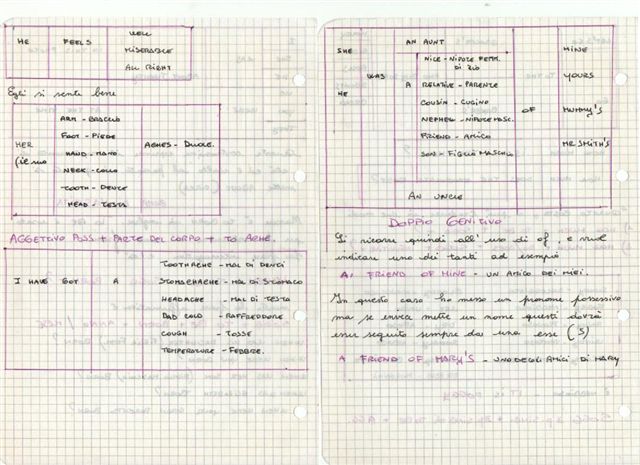 HE FEELS WELL
MISERABLE
ALL RIGHT
Egli si sente bene
HER
(ie suo
ARM - BRACCIO
FOOT - PIEDE
HAND - MANO
NECK - COLLO
TOOTH - DENTE
HEAD - TESTA
ACHES - DUOLE.
AGGETTIVO POSS + PARTE DEL CORPO + TO ACHE.
I HAVE GOT A
TOOTHACHE - MAL DI DENTI
STOMACHACHE - MAL DI STOMACO
HEADACHE - MAL DI TESTA
BAD COLD - RAFFREDDORE
COUGH - TOSSE
TEMPERATURE - FEBBRE.
SHE
HE
WAS
AN AUNT
A
NICE - NIPOTE FEMM.
DI ZIO
RELATIVE - PARENTE
COUSIN - CUGINO
NEPHEW - NIPOTE MASC.
FRIEND - AMICO
SON - FIGLIO MASCHIO
AN UNCLE
OF
MINE
YOURS
MUMMY'S
MR SMITH'S
DOPPIO GENITIVO
Si ricorre quindi all' uso di of, e vuol
indicare uno dei tanti ad esempio
A, FRIEND OF MINE - UN AMICO DEI MIEI.
In questo caso ho messo un pronome possessivo
ma se invece mette un nome questi dovrà
esser seguito sempre da una esse ('S)
A FRIEND OF MARY'S - UNO DEGLI AMICI DI MARY